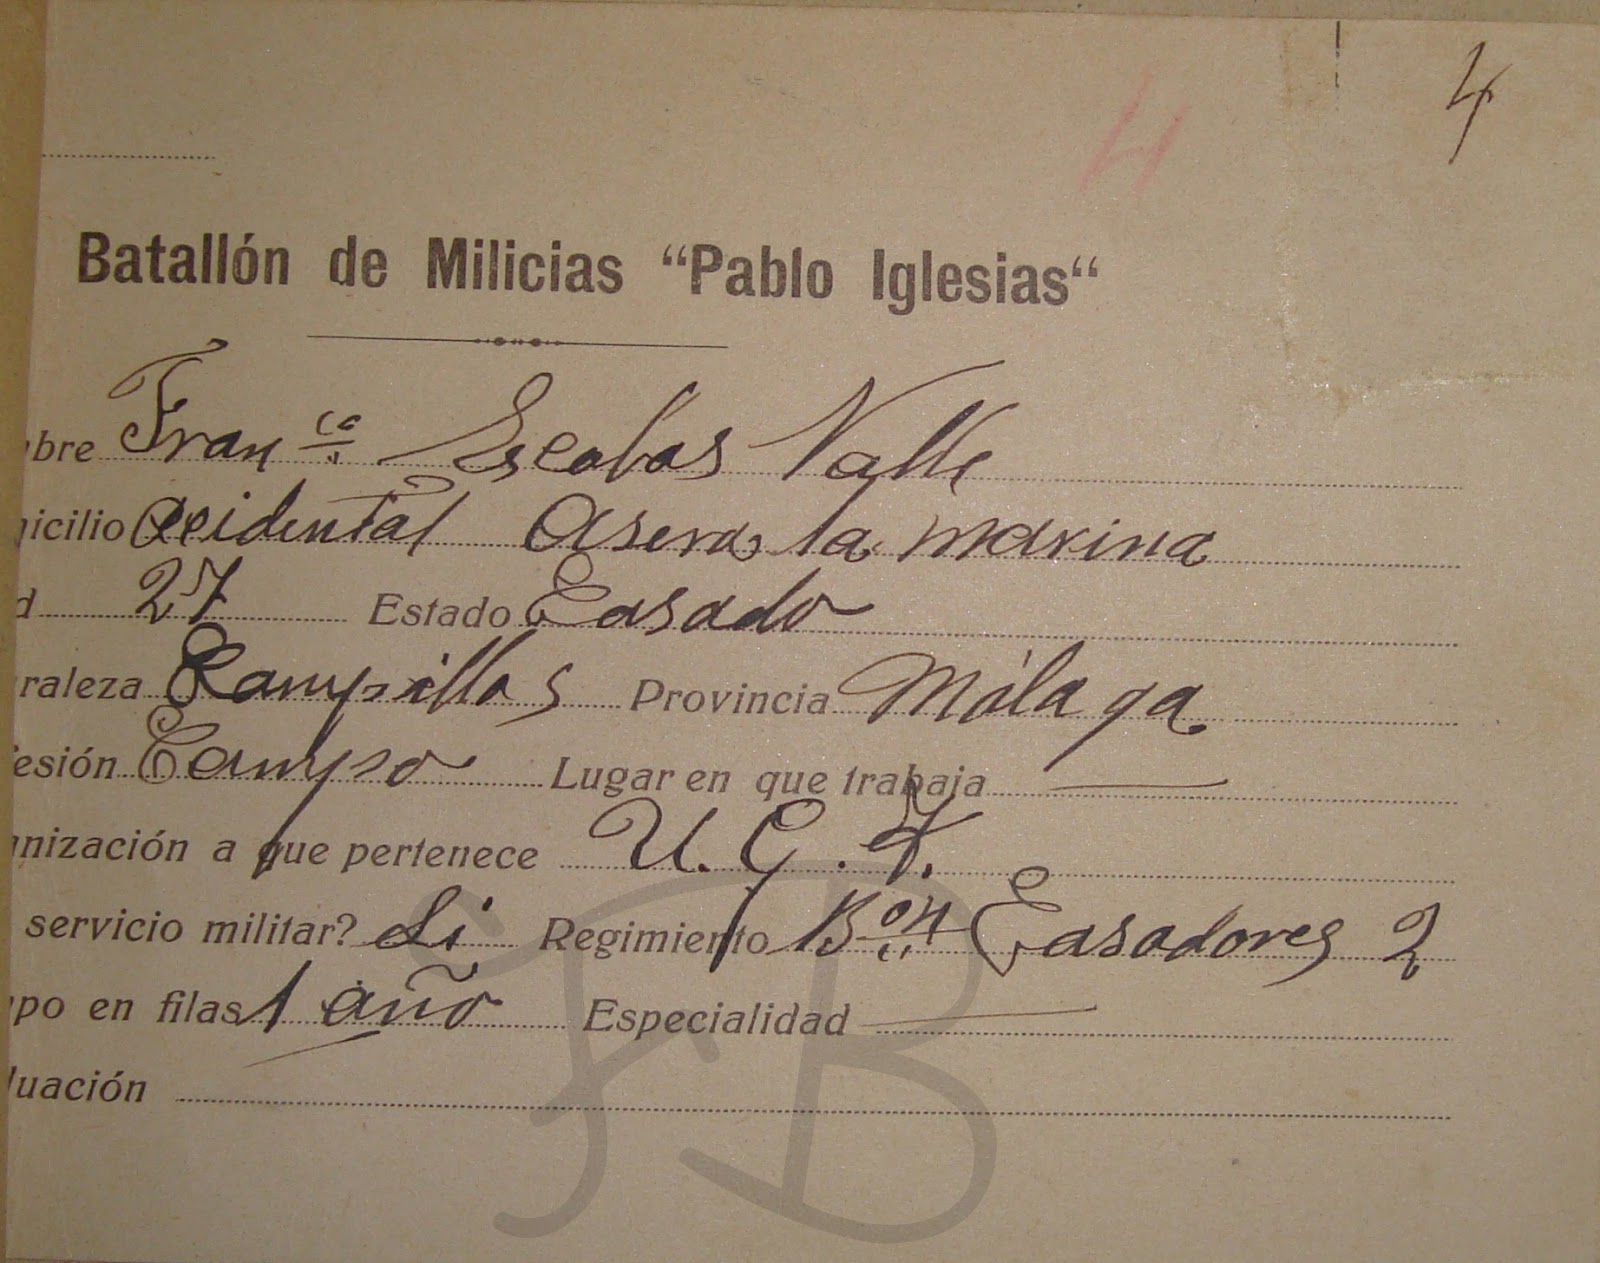 4
4
Batallón de Milicias “Pablo Iglesias“
bre Franco Escobar Valle
icilio Ocidental Asera la marina
d 27 Estado Casado
raleza Campillos Provincia Málaga
esión Campo Lugar en que trabaja —
nización a que pertenece U. G. T.
servicio militar? Si Regimiento Bon Casadores 2
po en filas 1 año Especialidad —
duación
FB